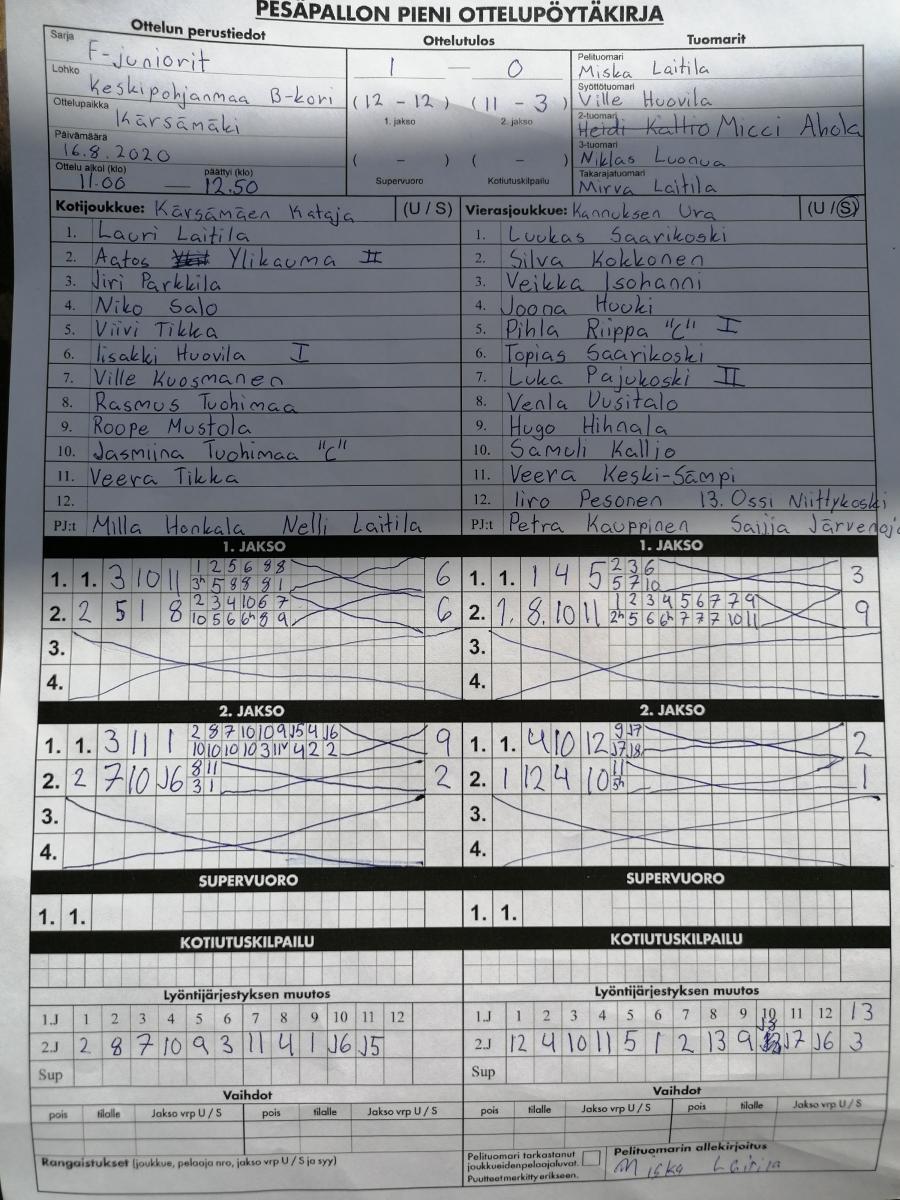 PESÄPALLON PIENI OTTELUPÖYTÄKIRJA
Ottelun perustiedot
Sarja
F-juniorit
Lohko
Keskipohjanmaa B-kori
Ottelupaikka
Kärsämäki
Päivämäärä
16.8.2020
Ottelu alkoi (klo) päättyi (klo)
11.00 — 12.50
Ottelutulos
1 — 0
(12 - 12) (11 - 3)
1. jakso 2. jakso
( - ) ( - )
Supervuoro Kotiutuskilpailu
Tuomarit
Pelituomari
Miska Laitila
Syöttötuomari
Ville Huovila
2-tuomari
Heidi Kallio Micci Ahola
3-tuomari
Niklas Luonua
Takarajatuomari
Mirva Laitila
Kotijoukkue: Kärsämäen Kataja (U / S)
1. Lauri Laitila
2. Aatos Ylikauma II
3. Jiri Parkkila
4. Niko Salo
5. Viivi Tikka
6. Iisakki Huovila I
7. Ville Kuosmanen
8. Rasmus Tuohimaa
9. Roope Mustola
10. Jasmiina Tuohimaa "C"
11. Veera Tikka
12.
PJ:t Milla Honkala Nelli Laitila
Vierasjoukkue: Kannuksen Ura (U / S)
1. Luukas Saarikoski
2. Silva Kokkonen
3. Veikka Isohanni
4. Joona Huuki
5. Pihla Riippa "C" I
6. Topias Saarikoski
7. Luka Pajukoski II
8. Venla Uusitalo
9. Hugo Hihnala
10. Samuli Kallio
11. Veera Keski-Sämpi
12. Iiro Pesonen 13. Ossi Niittykoski
PJ:t Petra Kauppinen Saija
1. JAKSO
1. 1. 3 10 11 1 2 5 6 8 8 6
3h 5 8 8 8 1
2. 2 5 1 8 2 3 4 10 6 7 6
10 5 6 6h 8 9
3.
4.
1. JAKSO
1. 1. 1 4 5 2 3 6 3
5 7 10
2. 1. 8. 10 11 1 2 3 4 5 6 7 7 9 9
2h 5 6 6h 7 7 7 10 11
3.
4.
2. JAKSO
1. 1. 3 11 1 2 8 7 10 10 9 J5 4 J6 9
10 10 10 10 3 11 4 2 2
2. 2 7 10 J6 8 11 2
3 1
3.
4.
2. JAKSO
1. 1. 4 10 12 9 J7 2
J7 J8
2. 1 12 4 10 11 1
5h
3.
4.
SUPERVUORO
1. 1.
SUPERVUORO
1. 1.
KOTIUTUSKILPAILU
KOTIUTUSKILPAILU
Lyöntijärjestyksen muutos
1.J 1 2 3 4 5 6 7 8 9 10 11 12
2.J 2 8 7 10 9 3 11 4 1 J6 J5
Sup
Lyöntijärjestyksen muutos
1.J 1 2 3 4 5 6 7 8 9 10 11 12 13
2.J 12 4 10 11 5 1 2 13 9 J8 J7 J6 3
Sup
Vaihdot
pois tilalle Jakso vrp U / S pois tilalle Jakso vrp U / S
Vaihdot
pois tilalle Jakso vrp U / S pois tilalle Jakso vrp U / S
Rangaistukset (joukkue, pelaaja nro, jakso vrp U / S ja syy)
Pelituomari tarkastanut
joukkueiden pelaajaluvat.
Puutteet merkitty erikseen.
Pelituomarin allekirjoitus
Miska Laitila